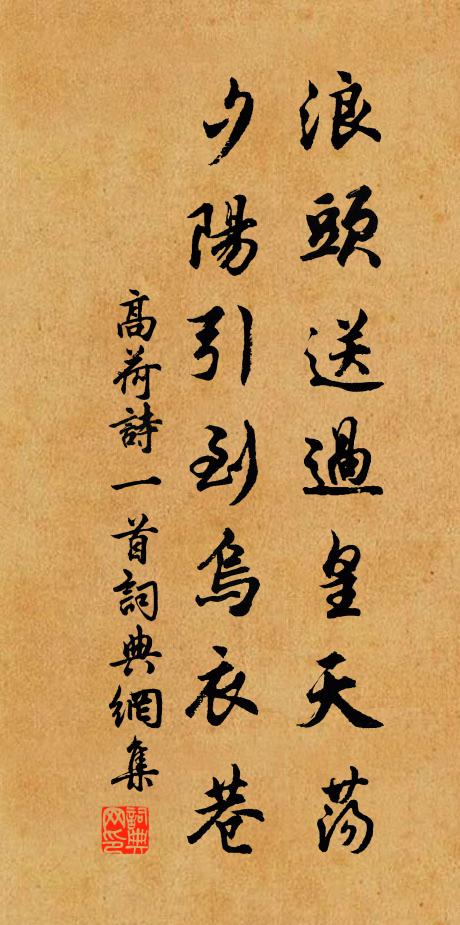 浪頭送過皇天蕩
夕陽引到烏衣巷
高荷詩一首詞典網集
詞典网印